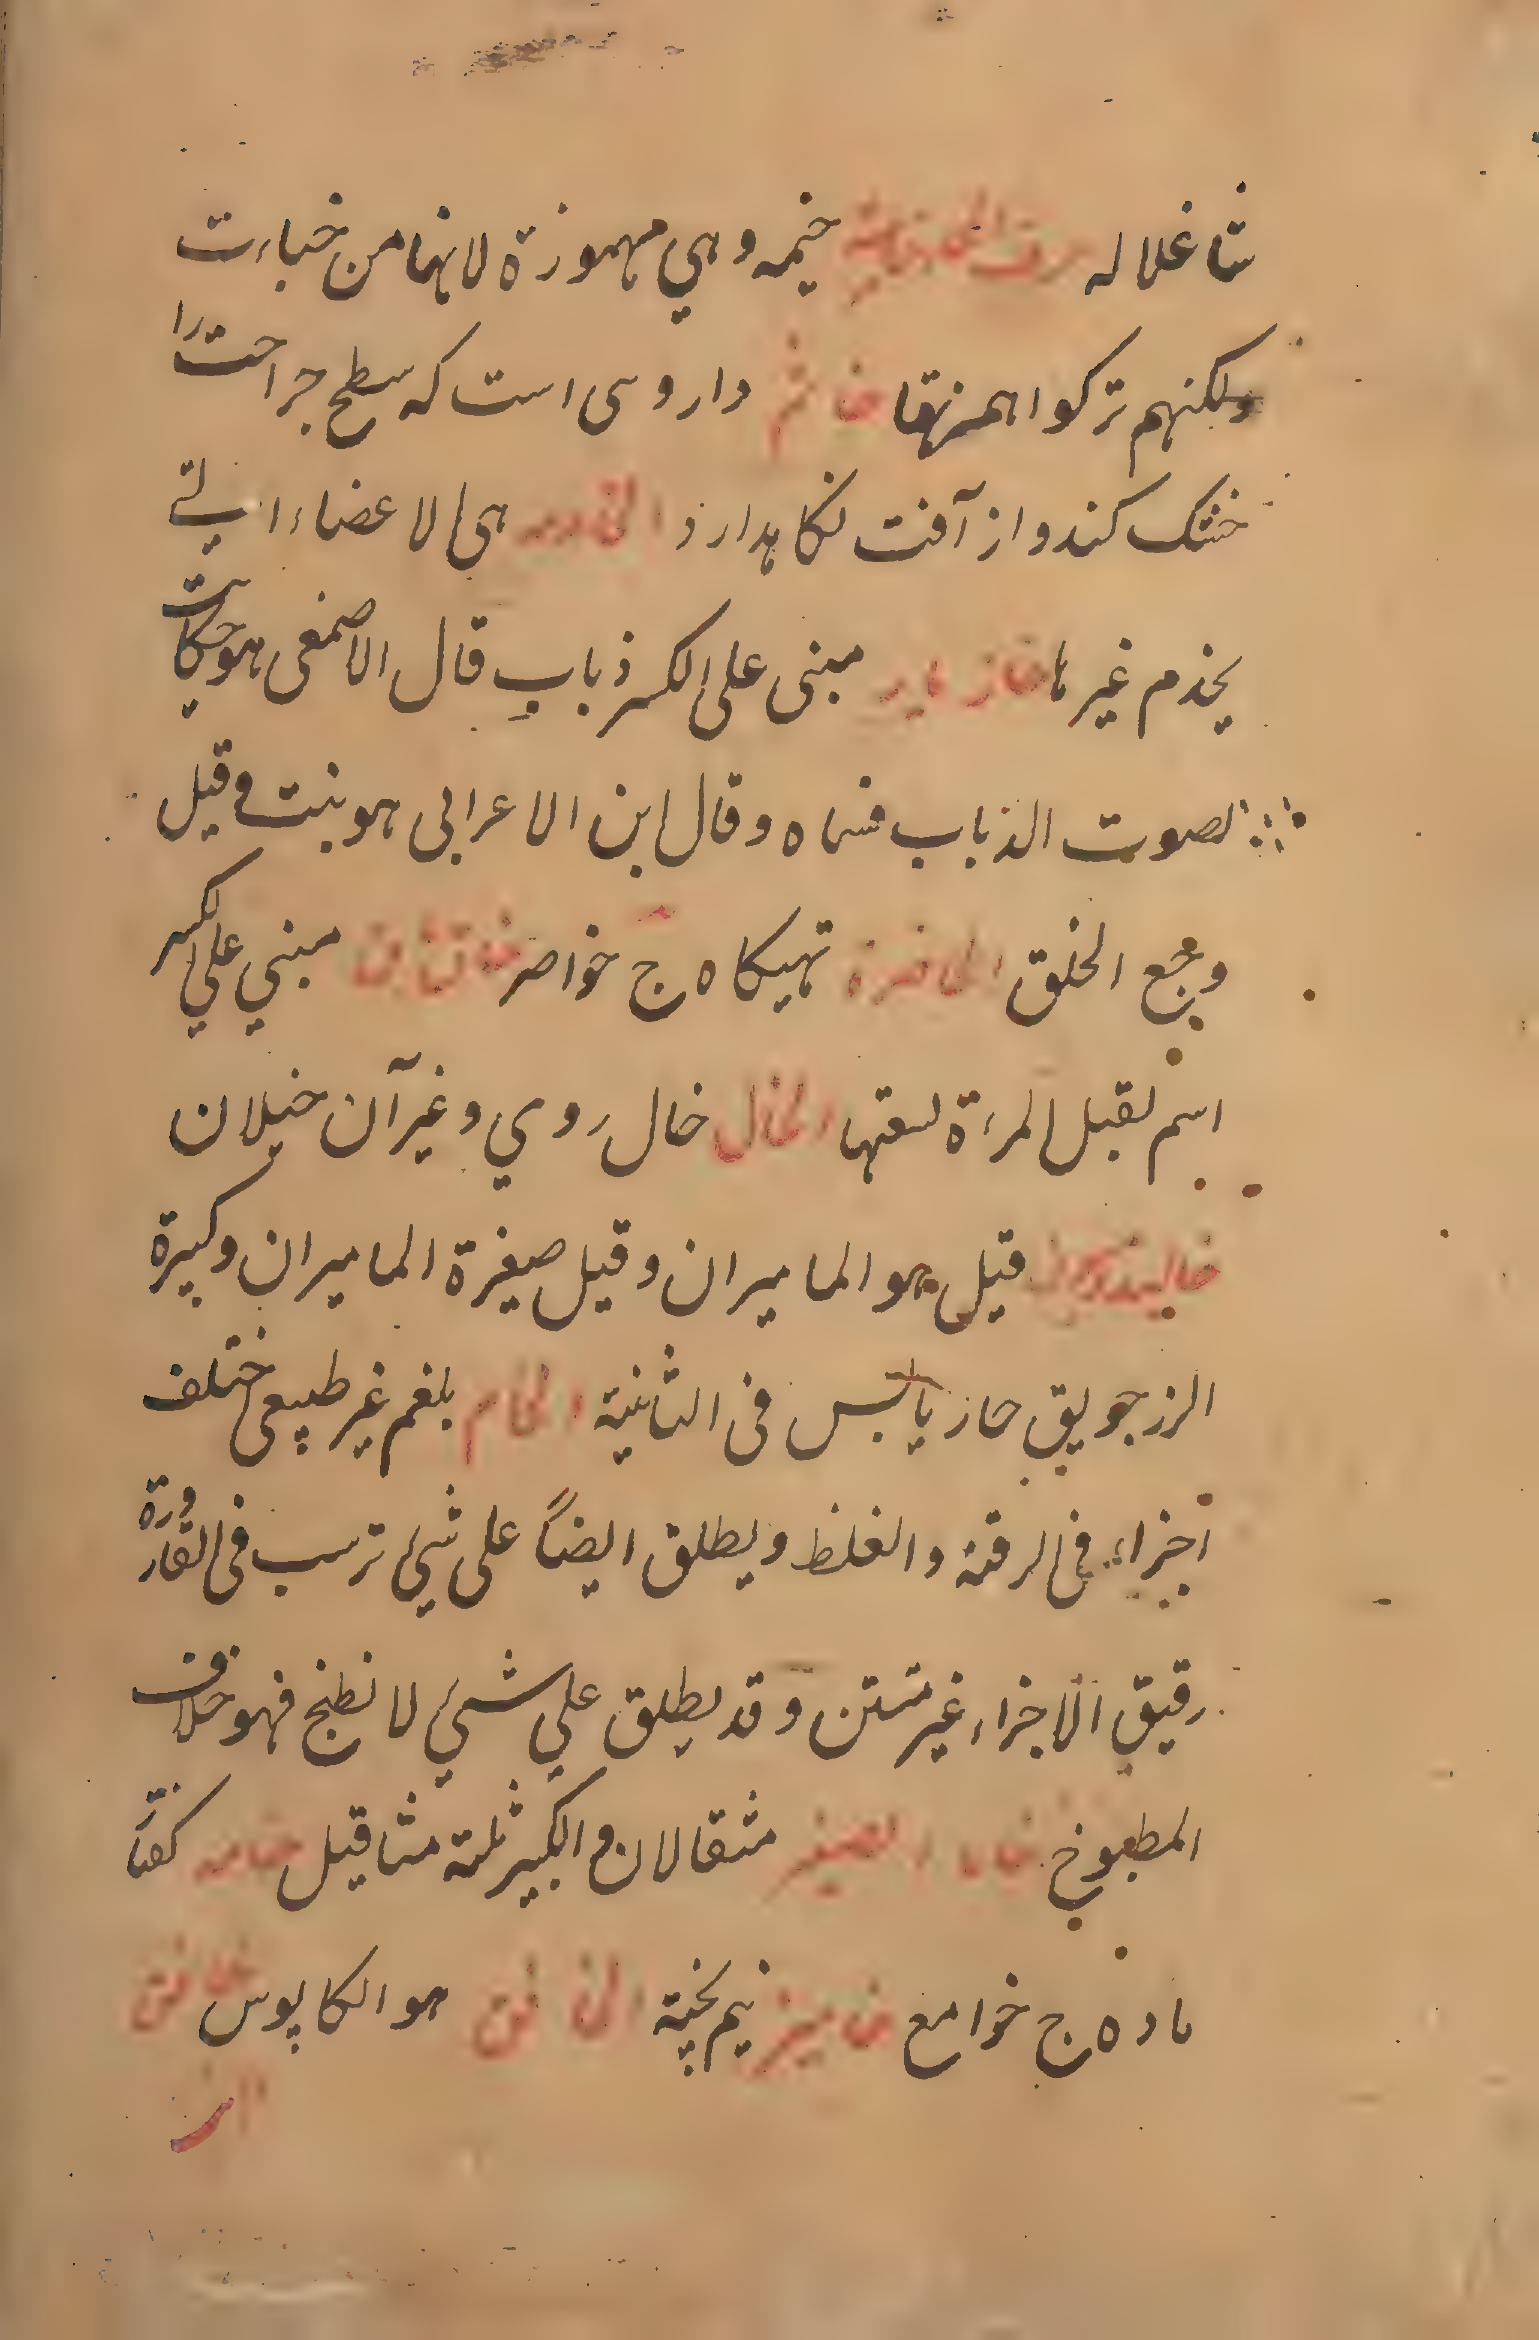 شاغلا له حرف الخاء خابية خیمه وهي مهموزة لانها من خباءت
ولكنهم تركوا همزتها خاتم داروی است که سطح جراحت را
خشک کند و از آفت نکاهدارد الخادمه هی الاعضاء التی
یخدم غیرها خازباز مبنی علی الکسر ذباب قال الاصمغی هو حکایت
لصوت الذباب فسماه وقال ابن الاعرابی هو بنت وقیل
وجع الخلق الخاصرة تهیکاه ج خواصر خاق باق مبني علي الکسر
اسم لقبل المرءة لسعتها الخال خال روي و غیر آن خیلان
قیل هو المامیران وقیل صغیرة المامیران وکبیرة
الزرجویق حار یابس فی الثانیة الخام بلغم غیر طبیعی ختلف
اجزاءه فی الرقة والغلظ ویطلق ایضاً علی شئ ترسب فی القارورة
رقیق الاجزاء غیر منتن وقد یطلق علي شئ لا نطبخ فهو خلاف
المطبوخ الصغیر مثقالان والکبیر ثلثة مثاقیل خامعه کفتار
ماده ج خوامع خامیز نیم پخته الخانق هو الکابوس خانق